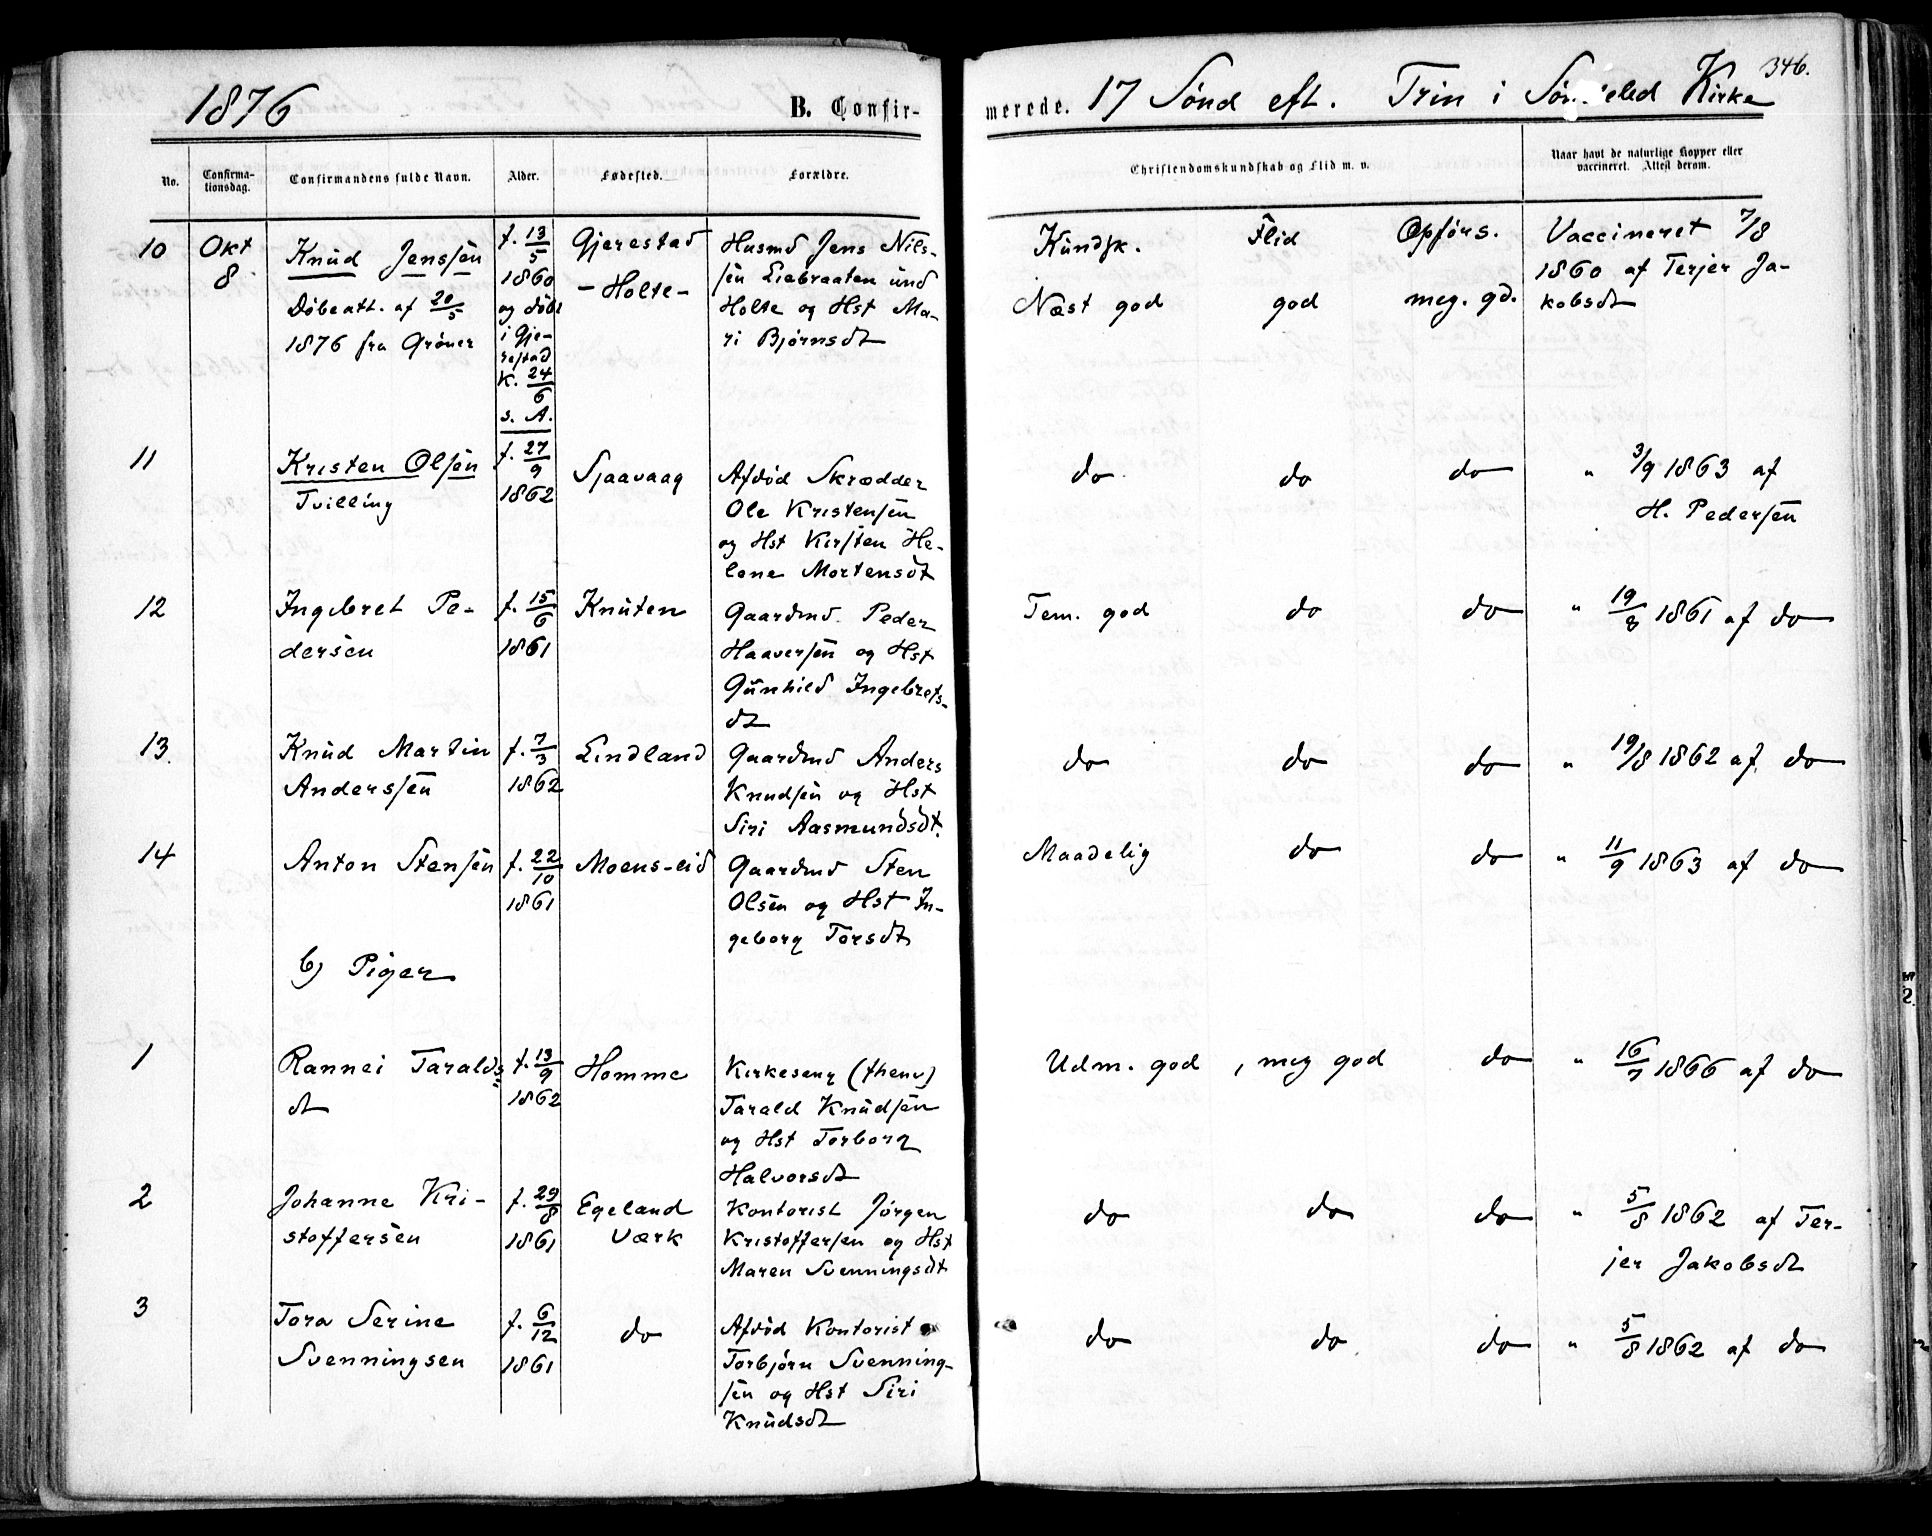 1876 B. Confir- merede. 17 Sønd eft. Trin i Søndeled Kirke 346.
No. Confirma-tionsdag. Confirmandens fulde Navn. Alder. Fødested. Forældre. Christendomskundskab og Flid m. v. Naar havt de naturlige Kopper eller vaccineret. Attest derom.
10 Okt Knud Jenssen f. 13/5 Gjerestad Husmd Jens Nils- Kundsk. Flid Opførs. Vaccineret 7/8
8 Døbeatt. af 20/5 1860 - Holte - sen Liebraaten und Næst god god meg. gd. 1860 af Terjer Ja-
1876 fra Grøner og døbt Holte og Hst Ma- kobsdt
i Gje- ri Bjørnsdt
restad
K. 24/6
s. A.
11 Kristen Olsen f. 27/9 Sjaavaag Afdød Skrædder do do do " 3/9 1863 af
Tvilling 1862 Ole Kristensen H. Pedersen
og Hst Kirsten He-
lene Mortensdt
12 Ingebret Pe- f. 15/6 Knuten Gaardmd. Peder Tem. god do do " 19/8 1861 af do
dersen 1861 Haaversen og Hst
Gunhild Ingebrets-
dt
13. Knud Martin f. 7/3 Lindland Gaardmd Anders do do do " 19/8 1862 af do
Anderssen 1862 Knudsen og Hst
Siri Aasmundsdt.
14 Anton Stensen f. 22/10 Moens-eid Gaardmd Sten Maadelig do do " 11/9 1863 af do
1861 Olsen og Hst In-
geborg Torsdt
b) Piger
1 Rannei Taralds f. 13/9 Homme Kirkesang (thenv) Udm. god , meg god do " 16/7 1866 af do
dt 1862 Tarald Knudsen
og Hst Torborg
Halvorsdt
2 Johanne Kri- f. 29/8 Egeland Kontorist Jørgen do do do " 5/8 1862 af Ter-
stoffersen 1861 Værk Kristoffersen og Hst jer Jakobsdt
Maren Svenningsdt
3 Tora Serine f. 6/12 do Afdød Kontorist do do do " 5/8 1862 af do
Svenningsen 1861 Torbjørn Svenning-
sen og Hst Siri
Knudsdt